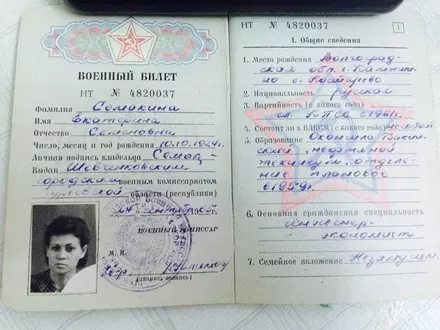 ВОЕННЫЙ БИЛЕТ
НТ № 4820037
Фамилия Семакина
Имя Екатерина
Отчество Семеновна
Число, месяц и год рождения 10.10.1924г.
Личная подпись владельца Семак
Выдан Шевченковским
городским военным комиссариатом
области (республики)
сентября
ВОЕННЫЙ КОМИССАР
М. П.
(звание, подпись)
НТ № 4820037
1
1. Общие сведения
1. Место рождения Волгоград-
ская обл. г. Калинино
с.
2. Национальность русская
3. Партийность (с какого года)
чл. КПСС с 1961г.
4. Состоит ли в ВЛКСМ (с какого года)
5. Образование Окончила
нефтяной
техникум, отделение
плановое
в 1959г.
6. Основная гражданская специальность
инженер-
экономист
7. Семейное положение Незамужем